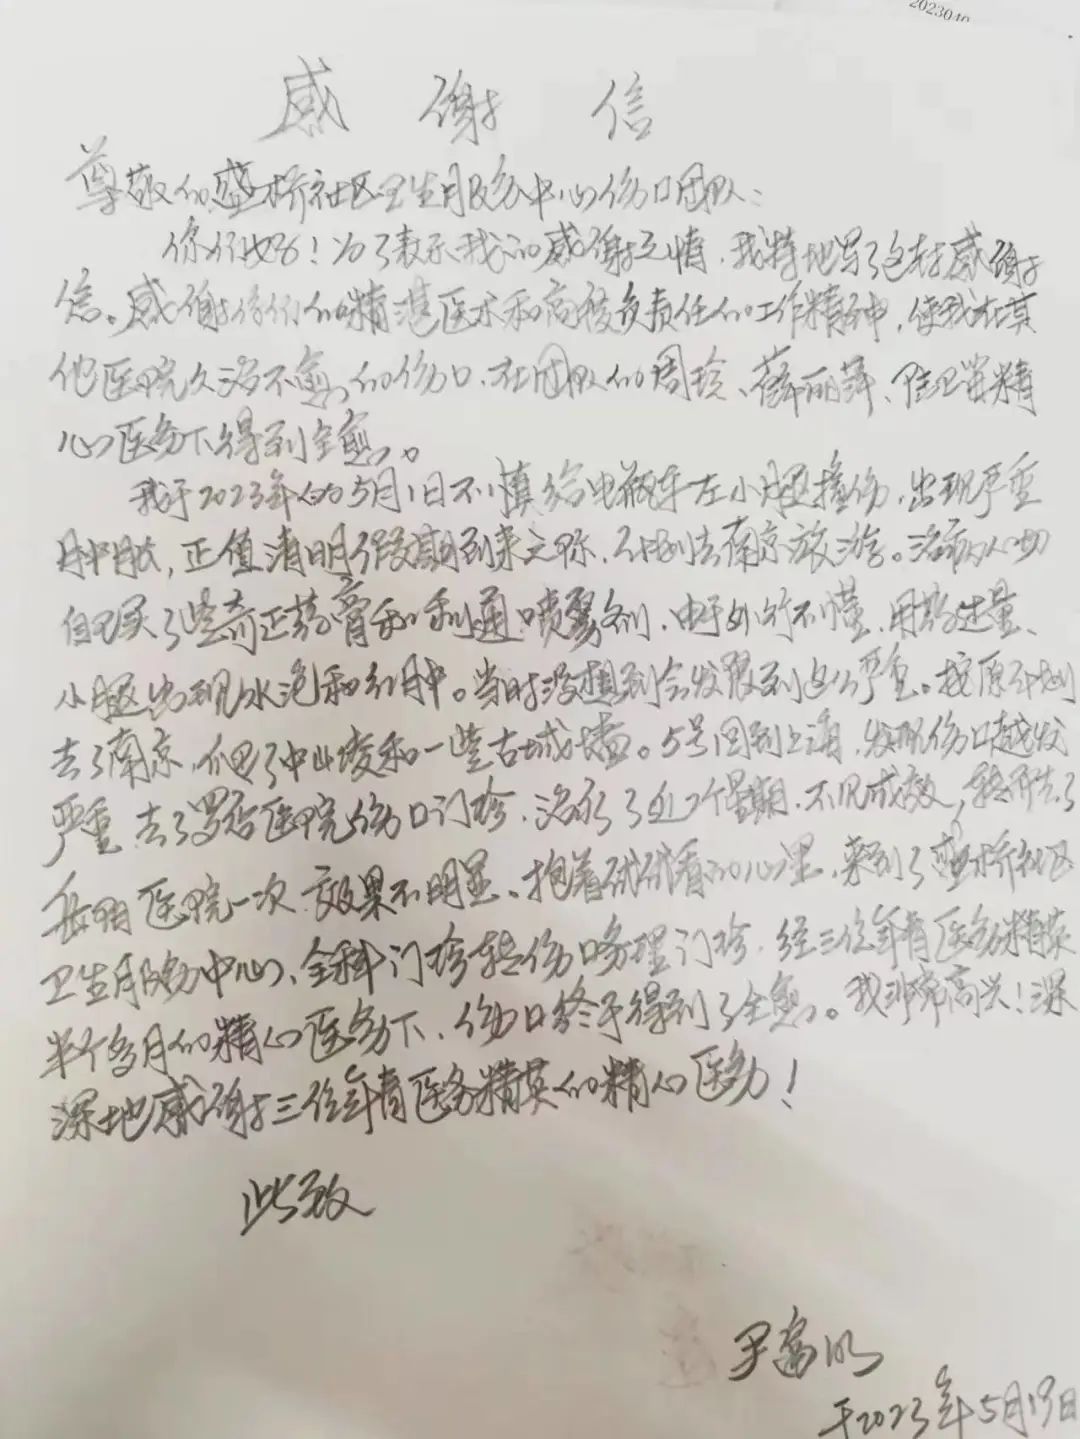 2023040
感谢信
尊敬的盛桥社区卫生服务中心伤口团队：
你们好！为了表示我的感谢之情，我特地写了这封感谢
信。感谢你们的精湛医术和高度负责任的工作精神，使我在其
他医院久治不愈的伤口，在团队的周玲、薛丽萍、陆 精
心医务下得到全愈。
我于2023年的5月1日不慎给电瓶车左小腿撞伤，出现严重
肿胀，正值清明假期到来之际，计划去南京旅游。治病心切
自己买了些奇正药膏和利通喷雾剂，由于外行不懂，用药过量、
小腿出现水泡和红肿。当时没想到会发展到这么严重。按原计划
去了南京，爬了中山陵和一些古城墙。5号回到上海，发现伤口越发
严重，去了罗店医院伤口门诊，治疗了近2个星期，不见成效，转而去了
岳阳医院一次，效果不明显。抱着试试看的心里，来到了盛桥社区
卫生服务中心、全科门诊转伤口护理门诊，经三位年青医务精英
半个多月的精心医务下，伤口终于得到了全愈。我非常高兴！深
深地感谢三位年青医务精英的精心医务！
此致
于2023年5月19日